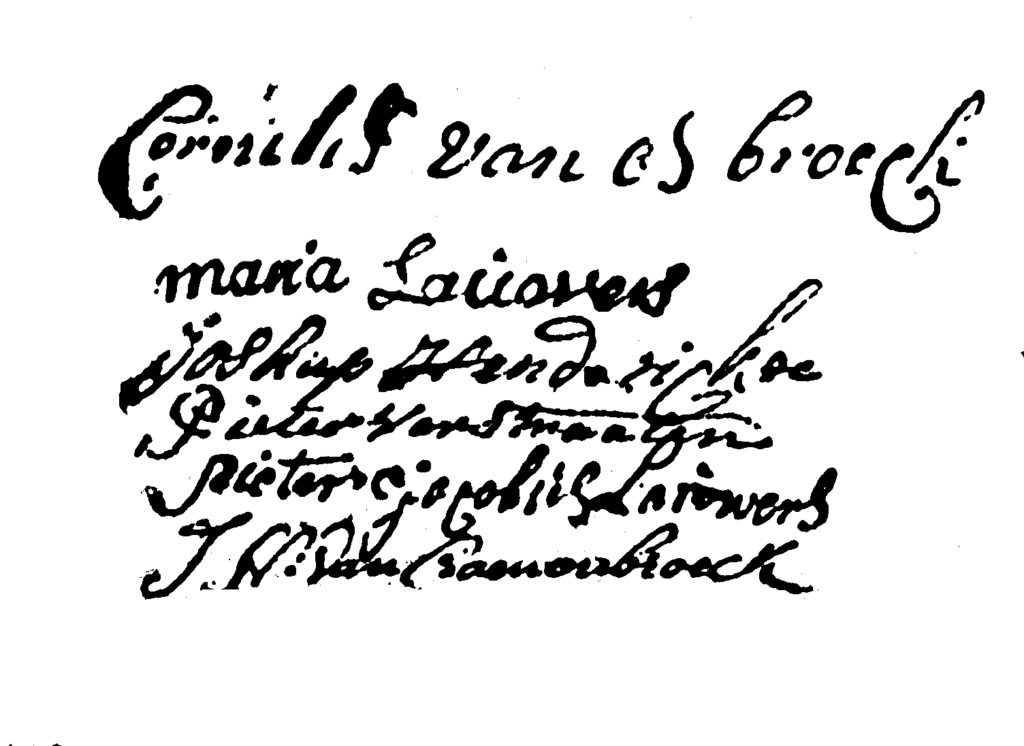 Cornilis van es broeck
maria Lauowers
Joshup Henderickse
Pieter Verstraatn
pieter jacobus Lauwers
J. W. Van Cranenbroeck